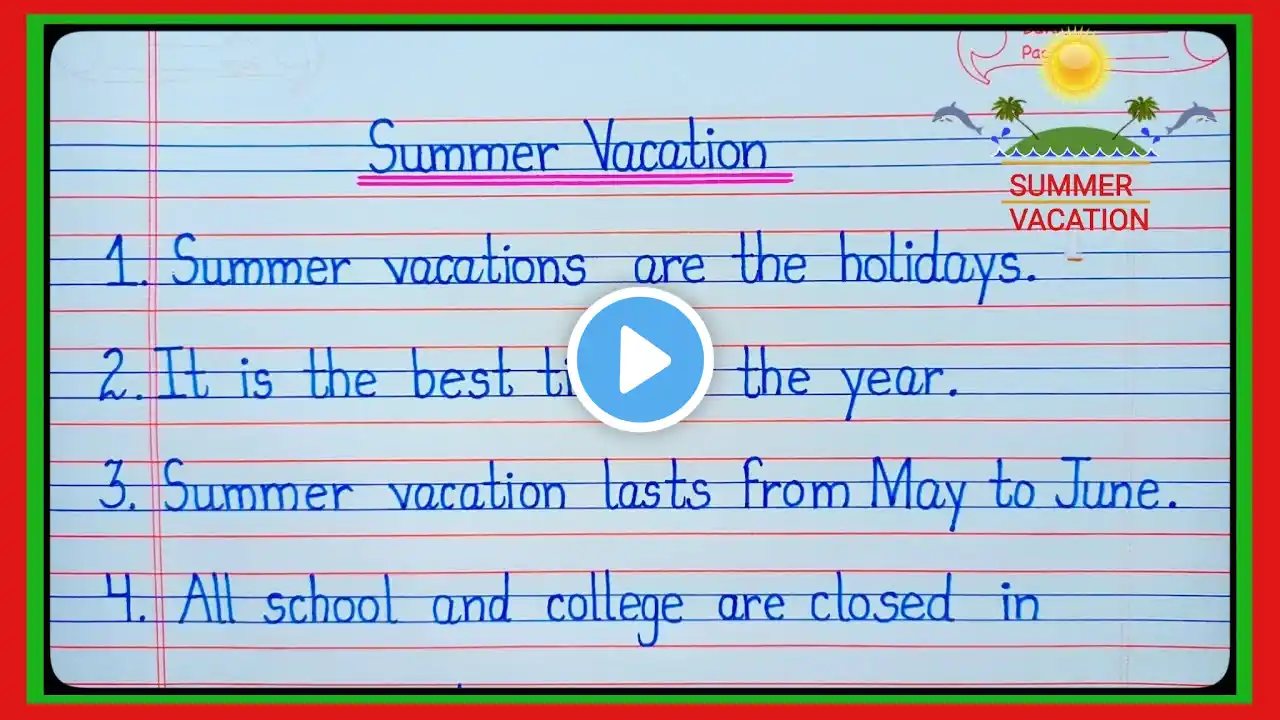 Summer Vacation
SUMMER
VACATION
1. Summer vacations are the holidays.
2. It is the best the year.
3. Summer vacation lasts from May to June.
4. All school and college are closed in